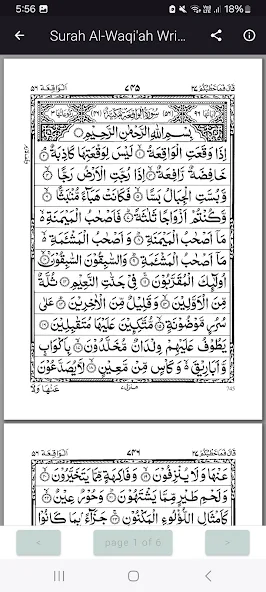 5:56
18%
Surah Al-Waqi'ah Wri...
الواقعة ٥٦
٧٣٥
قال فما خطبكم ٢٧
بِسْمِ اللهِ الرَّحْمٰنِ الرَّحِيْمِ
اِذَا وَقَعَتِ الْوَاقِعَةُ ۙ لَيْسَ لِوَقْعَتِهَا كَاذِبَةٌ ۘ
خَافِضَةٌ رَّافِعَةٌ ۙ اِذَا رُجَّتِ الْاَرْضُ رَجًّا ۙ
وَّبُسَّتِ الْجِبَالُ بَسًّا ۙ فَكَانَتْ هَبَآءً مُّنْۢبَثًّا ۙ
وَّكُنْتُمْ اَزْوَاجًا ثَلٰثَةً ؕ فَاَصْحٰبُ الْمَيْمَنَةِ ۙ
مَاۤ اَصْحٰبُ الْمَيْمَنَةِ ؕ وَاَصْحٰبُ الْمَشْئَمَةِ ۙ
مَاۤ اَصْحٰبُ الْمَشْئَمَةِ ؕ وَالسّٰبِقُوْنَ السّٰبِقُوْنَ ۙ
اُولٰٓئِكَ الْمُقَرَّبُوْنَ ۚ فِيْ جَنّٰتِ النَّعِيْمِ ۙ ثُلَّةٌ
مِّنَ الْاَوَّلِيْنَ ۙ وَقَلِيْلٌ مِّنَ الْاٰخِرِيْنَ ؕ عَلٰى
سُرُرٍ مَّوْضُوْنَةٍ ۙ مُّتَّكِـِٕيْنَ عَلَيْهَا مُتَقٰبِلِيْنَ
يَطُوْفُ عَلَيْهِمْ وِلْدَانٌ مُّخَلَّدُوْنَ ۙ بِاَكْوَابٍ
وَّاَبَارِيْقَ ۙ وَكَاْسٍ مِّنْ مَّعِيْنٍ ۙ لَّا يُصَدَّعُوْنَ
عَنْهَا وَلَا
745
الواقعة ٥٦
٧٣٦
قال فما خطبكم ٢٧
عَنْهَا وَلَا يُنْزِفُوْنَ ۙ وَفَاكِهَةٍ مِّمَّا يَتَخَيَّرُوْنَ ۙ
وَلَحْمِ طَيْرٍ مِّمَّا يَشْتَهُوْنَ ؕ وَحُوْرٌ عِيْنٌ ۙ
كَاَمْثَالِ اللُّؤْلُؤِ الْمَكْنُوْنِ ۚ جَزَآءًۢ بِمَا كَانُوْا
< page 1 of 6 >